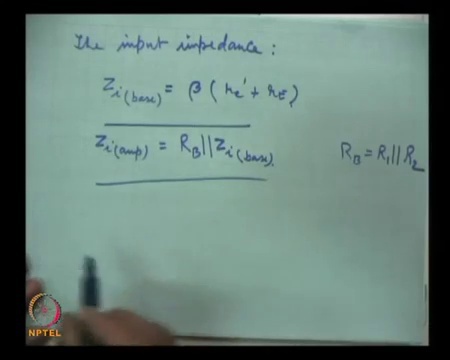 The input impedance :
Z_i(base) = β ( r_e' + r_E )
Z_i(amp) = R_B || Z_i(base).
R_B = R_1 || R_2
NPTEL